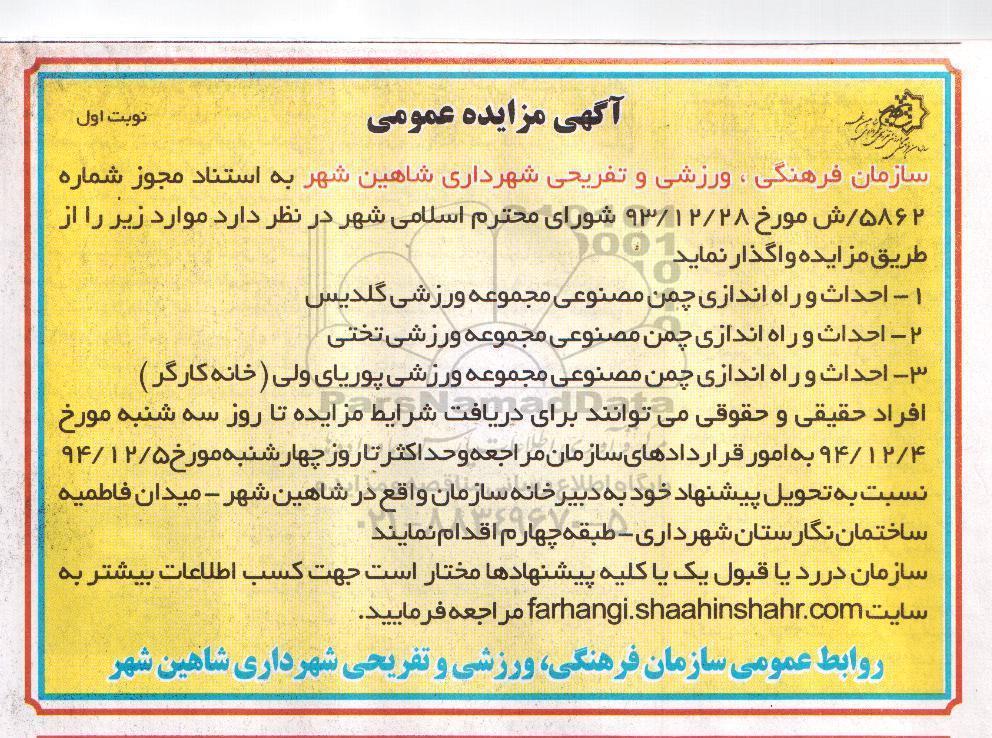 آگهی مزایده عمومی
نوبت اول
سازمان فرهنگی ، ورزشی و تفریحی شهرداری شاهین شهر به استناد مجوز شماره
۵۸۶۲/ش مورخ ۹۳/۱۲/۲۸ شورای محترم اسلامی شهر در نظر دارد موارد زیر را از
طریق مزایده واگذار نماید
۱- احداث و راه اندازی چمن مصنوعی مجموعه ورزشی گلدیس
۲- احداث و راه اندازی چمن مصنوعی مجموعه ورزشی تختی
۳- احداث و راه اندازی چمن مصنوعی مجموعه ورزشی پوریای ولی (خانه کارگر)
ParsNamadData
افراد حقیقی و حقوقی می توانند برای دریافت شرایط مزایده تا روز سه شنبه مورخ
۹۴/۱۲/۴ به امور قراردادهای سازمان مراجعه وحداکثر تا روز چهارشنبه مورخ ۹۴/۱۲/۵
نسبت به تحویل پیشنهاد خود به دبیرخانه سازمان واقع در شاهین شهر – میدان فاطمیه
ساختمان نگارستان شهرداری – طبقه چهارم اقدام نمایند
۰۲۱-۸۸۳۴۹۶۷۰-۵
سازمان دررد یا قبول یک یا کلیه پیشنهادها مختار است جهت کسب اطلاعات بیشتر به
سایت farhangi.shaahinshahr.com مراجعه فرمایید.
روابط عمومی سازمان فرهنگی، ورزشی و تفریحی شهرداری شاهین شهر